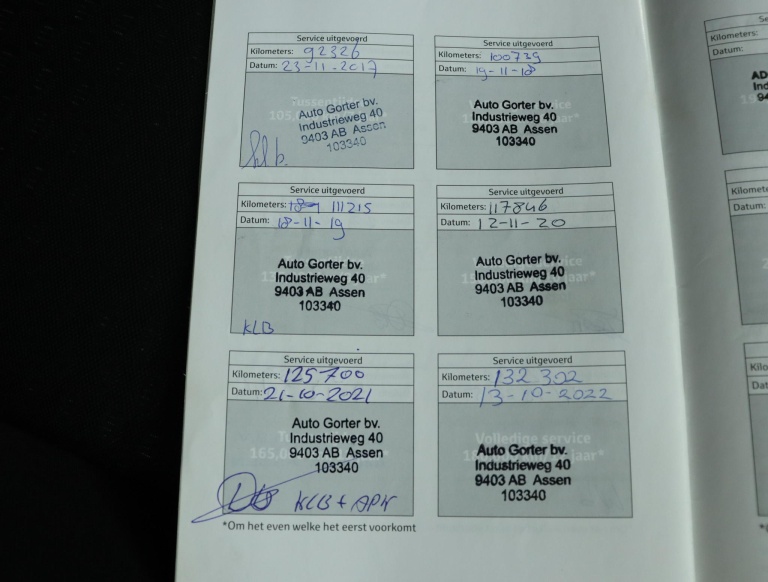 Service uitgevoerd
Kilometers: 92326
Datum: 23-11-2017
Auto Gorter bv.
Industrieweg 40
9403 AB Assen
103340
Service uitgevoerd
Kilometers: 100739
Datum: 19-11-18
Auto Gorter bv.
Industrieweg 40
9403 AB Assen
103340
Service uitgevoerd
Kilometers: 111215
Datum: 18-11-19
Auto Gorter bv.
Industrieweg 40
9403 AB Assen
103340
KLB
Service uitgevoerd
Kilometers: 117846
Datum: 12-11-20
Auto Gorter bv.
Industrieweg 40
9403 AB Assen
103340
Service uitgevoerd
Kilometers: 125700
Datum: 21-10-2021
Auto Gorter bv.
Industrieweg 40
9403 AB Assen
103340
KLB + APK
Service uitgevoerd
Kilometers: 132 302
Datum: 13-10-2022
Volledige service
Auto Gorter bv.
Industrieweg 40
9403 AB Assen
103340
*Om het even welke het eerst voorkomt
Kilometers:
Datum: